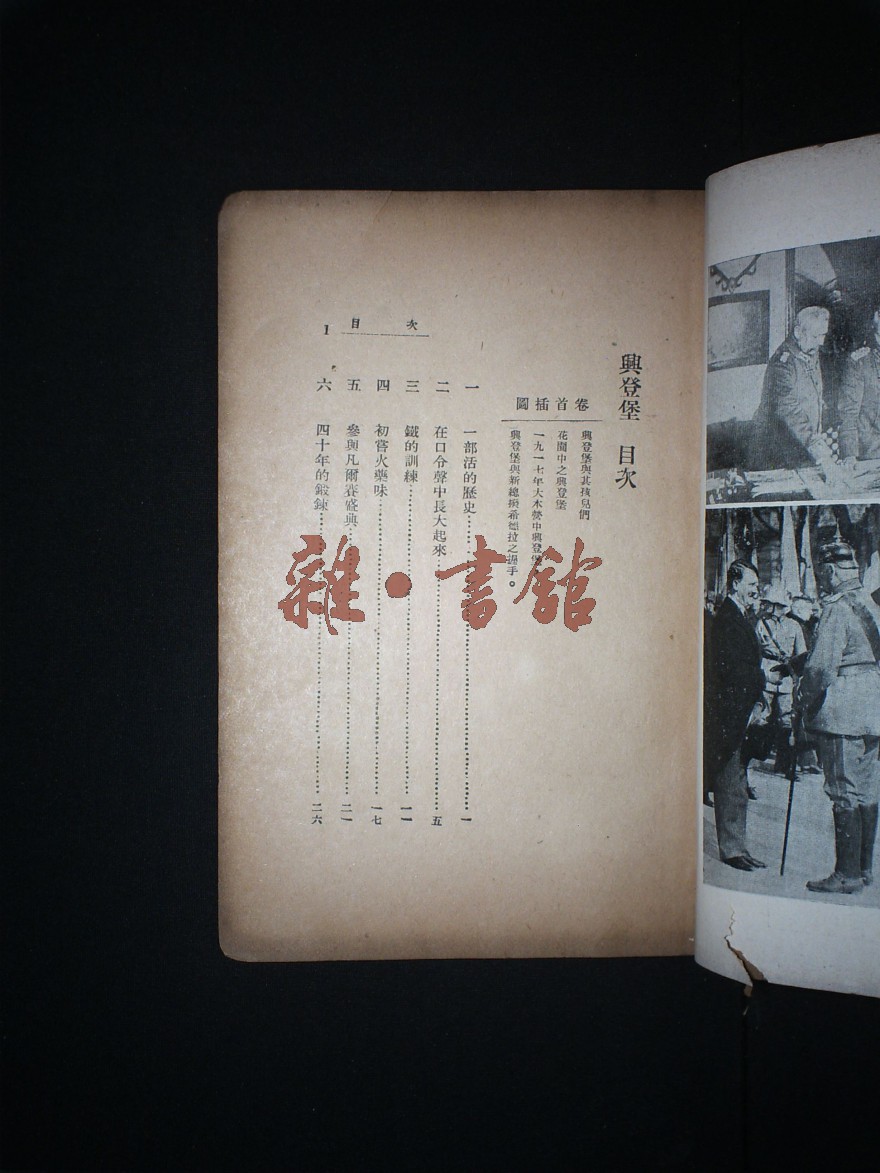 興登堡 目次
卷首插圖
興登堡與其孩兒們
花園中之興登堡
一九一七年大本營中興登堡
興登堡與新總揆希德拉之握手。
一 一部活的歷史 一
二 在口令聲中長大起來 五
三 鐵的訓練 一一
四 初嘗火藥味 一七
五 參與凡爾賽盛典 二一
六 四十年的鍛鍊 二六
目次
1
雜·書館